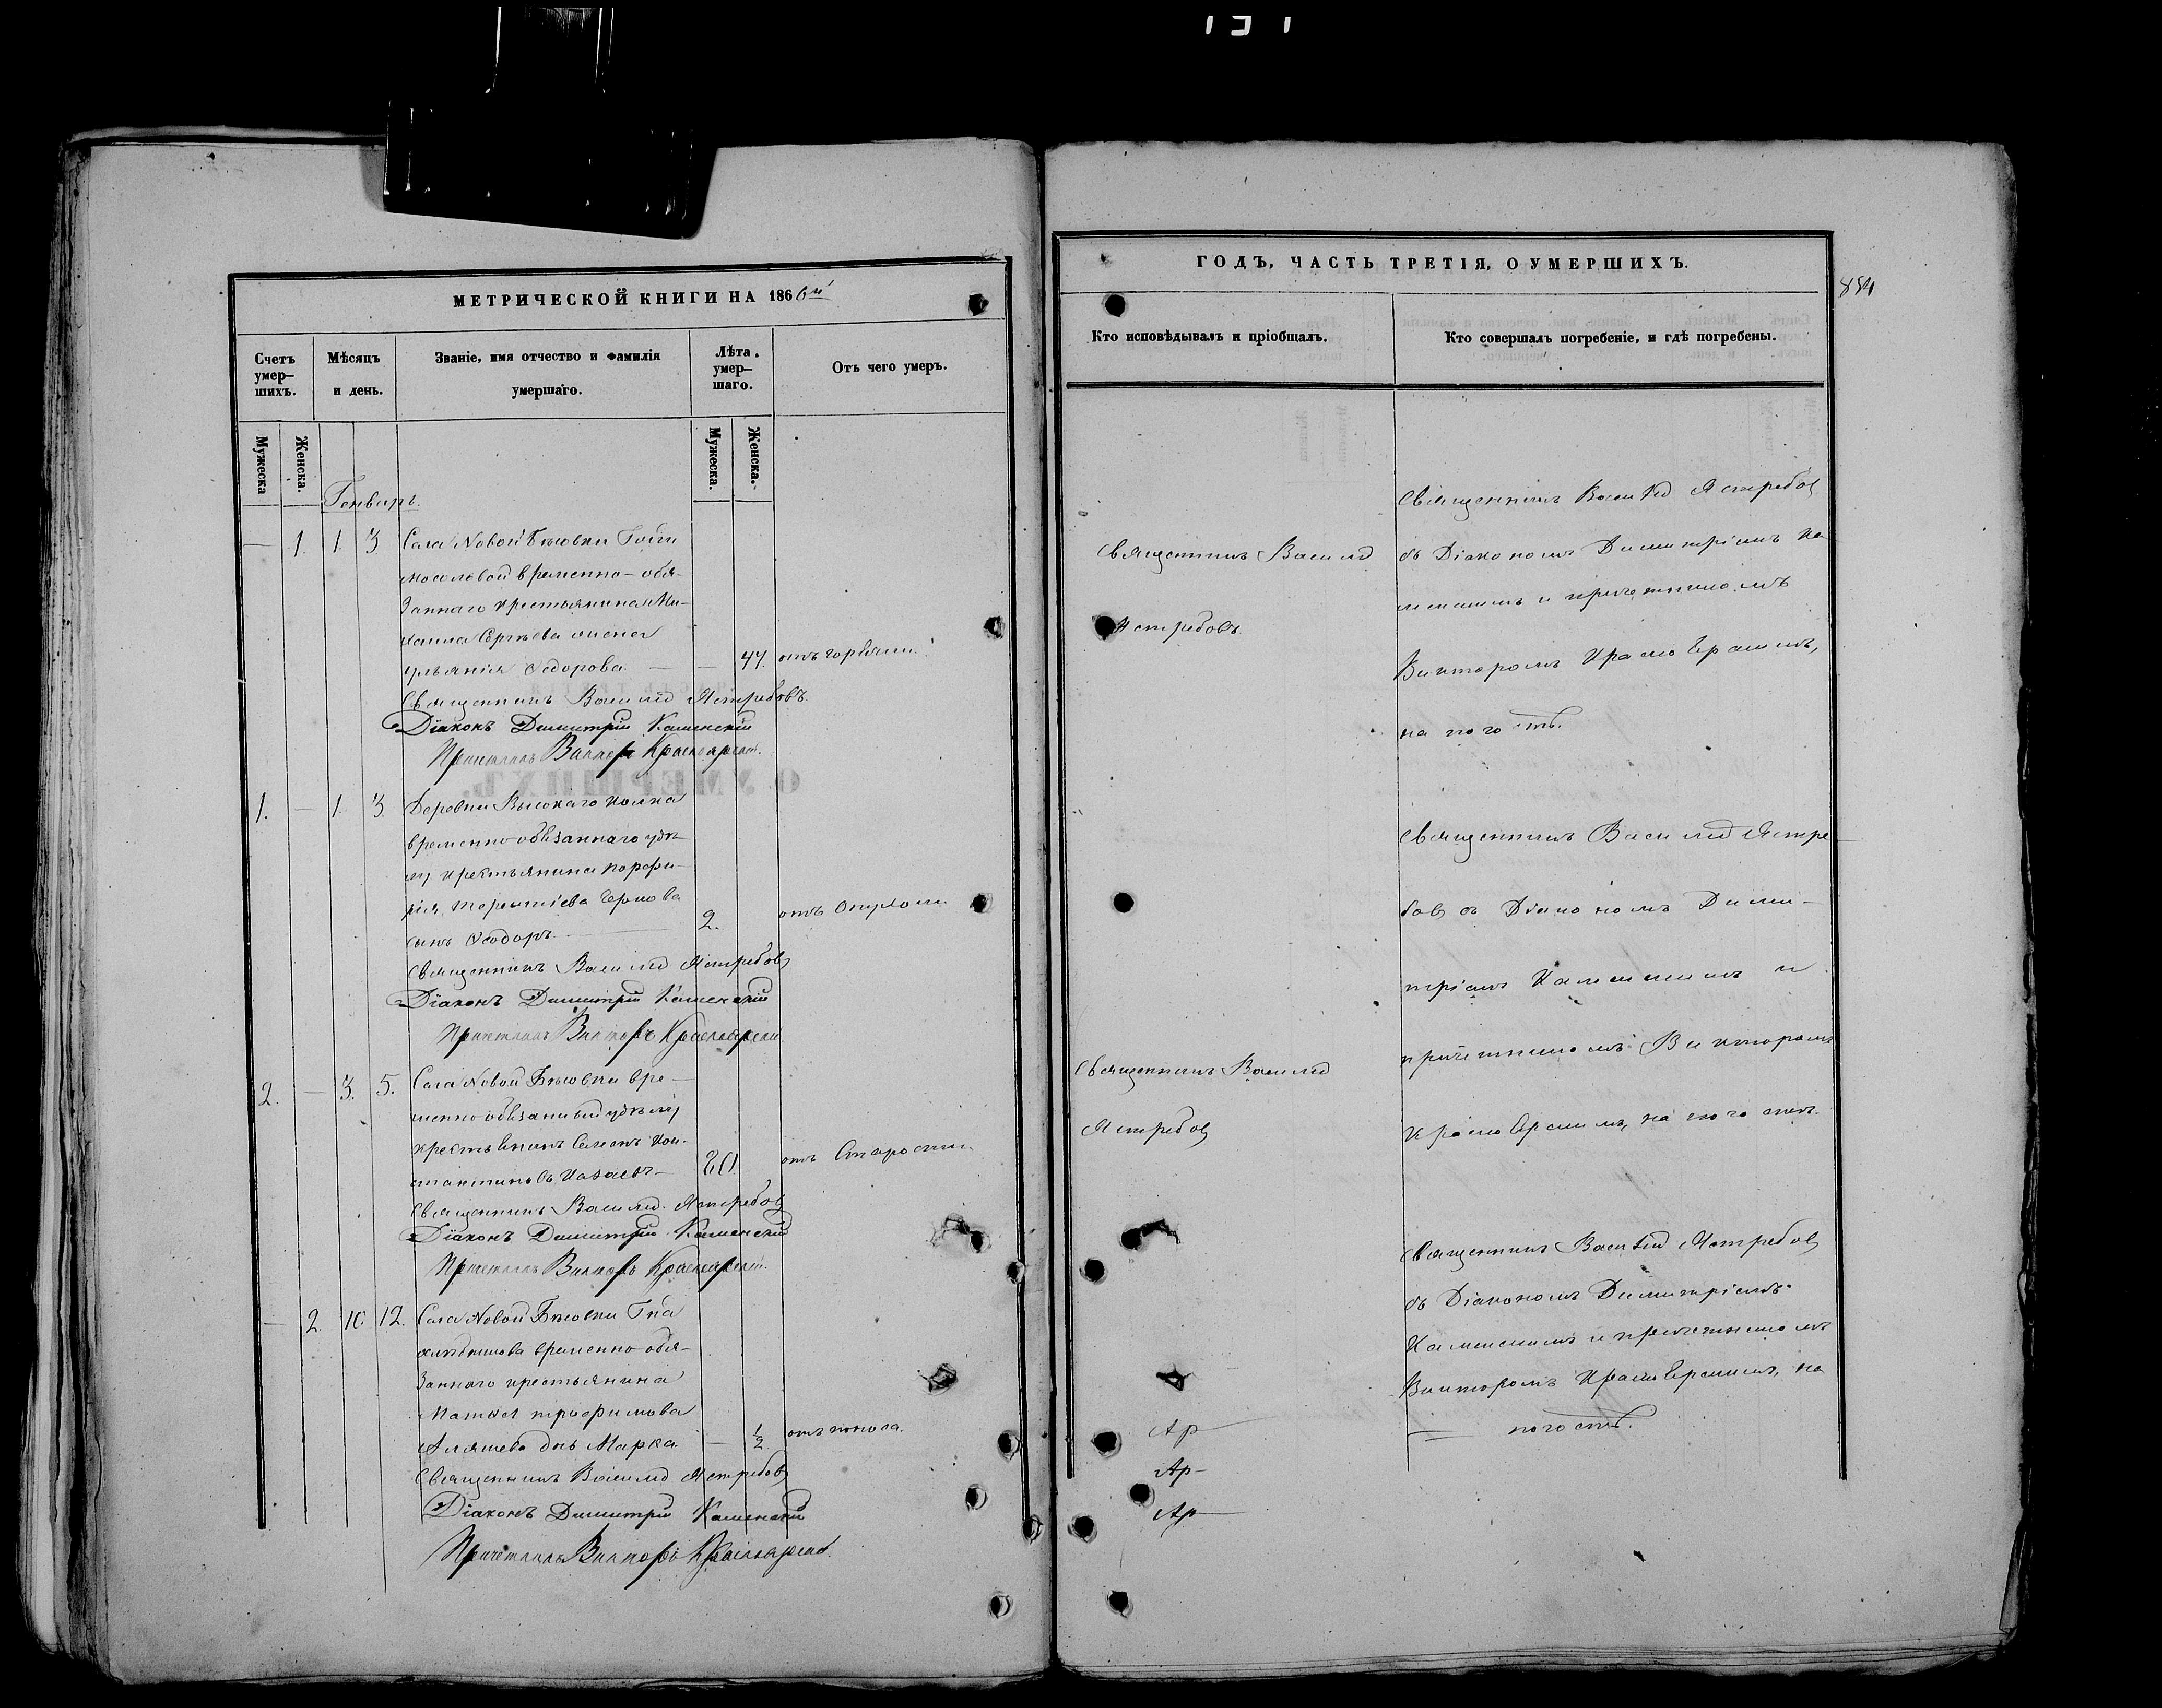 МЕТРИЧЕСКОЙ КНИГИ НА 1866й
Счетъ умер-шихъ.
Мѣсяцъ и день.
Званіе, имя отчество и фамилія умершаго.
Лѣта умер-шаго.
Отъ чего умеръ.
Мужеска
Женска.
Мужеска.
Женска.
Генварь.
1. 1. 3 Села Новой Бѣковки
временно-обя-
заннаго крестьянина Ми-
хаила Сергѣева жена
Ульянія Ѳедорова. — — 44. отъ горячки
Священникъ Василій Ястребовъ.
Діаконъ Димитрій Каменскій
Причетникъ Викторъ Красноярскій.
1. — 1. 3. Деревни Высокаго Колка
временно-обязаннаго
крестьянина Порфи-
рія Терентіева
сынъ Ѳеодоръ. — 2. отъ Опухоли
Священникъ Василій Ястребовъ
Діаконъ Димитрій Каменскій
Причетникъ Викторъ Красноярскій
2. — 3. 5. Села Новой Бѣковки вре-
менно обязанный
крестьянинъ Семенъ Кон-
стантиновъ 80. отъ Старости
Священникъ Василій Ястребовъ
Діаконъ Димитрій Каменскій
Причетникъ Викторъ Красноярскій.
— 2. 10. 12. Села Новой Бѣковки Гна
временно-обя-
заннаго крестьянина
Матвея Трофимова
дочь Марѳа. — 1/2. отъ поноса.
Священникъ Василій Ястребовъ
Діаконъ Димитрій Каменскій
Причетникъ Викторъ Красноярскій.
ГОДЪ, ЧАСТЬ ТРЕТІЯ, О УМЕРШИХЪ.
Кто исповѣдывалъ и пріобщалъ.
Кто совершалъ погребеніе, и гдѣ погребены.
Священникъ Василій
Ястребовъ.
Священникъ Василій Ястребовъ
съ Діакономъ Димитріемъ Ка
менскимъ и причетникомъ
Викторомъ Красноярскимъ,
на погостѣ.
Священникъ Василій Ястре-
бовъ съ Діакономъ Дими-
тріемъ Каменскимъ и
причетникомъ Викторомъ
Красноярскимъ, на погостѣ.
Священникъ Василій
Ястребовъ
Священникъ Василій Ястребовъ
съ Діакономъ Димитріемъ
Каменскимъ и причетникомъ
Викторомъ Красноярскимъ, на
погостѣ.
Ар
Ар
Ар